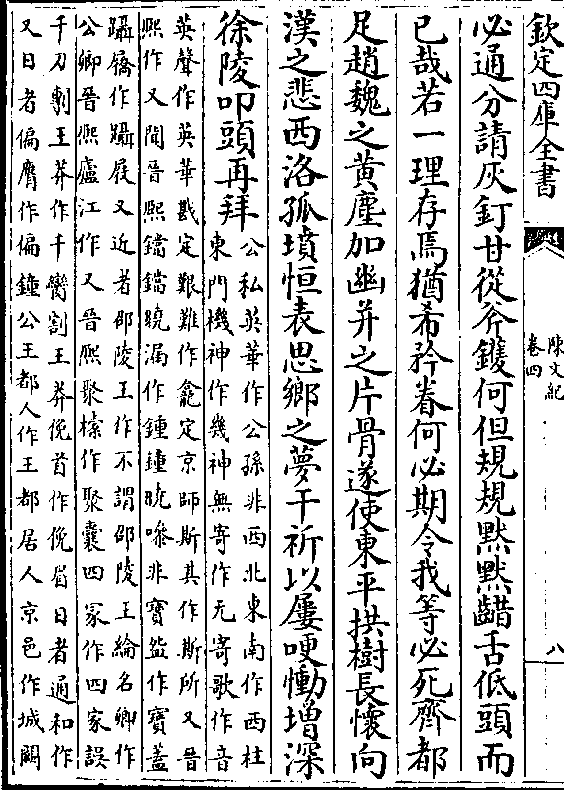 欽定四庫全書
陳文紀
卷四
八
必通分請灰釘甘從斧鑊何但規規黙黙齰舌低頭而
已哉若一理存焉猶希矜眷何必期令我等必死齊都
足趙魏之黄塵加幽并之片骨遂使東平拱樹長懷向
漢之悲西洛孤墳恒表思鄉之夢干祈以屢哽慟增深
徐陵叩頭再拜
公私英華作公孫非西北東南作西柱
東門機神作幾神無寄作无寄歌作音
英聲作英華戡定艱難作龕定京師斯其作斯所又晉
熙作又聞晉熙鐺鐺曉漏作鍾鍾曉噝非寶盌作寶蓋
躡屩作躡屐又近者邵陵王作不謂邵陵王綸名卿作
公卿晉熙廬江作又晉熙聚檺作聚囊四冢作四家誤
千刀剸王莽作千臠割王莽俛首作俛眉日者通和作
又日者偏膺作偏鍾公王都人作王都居人京邑作城闕